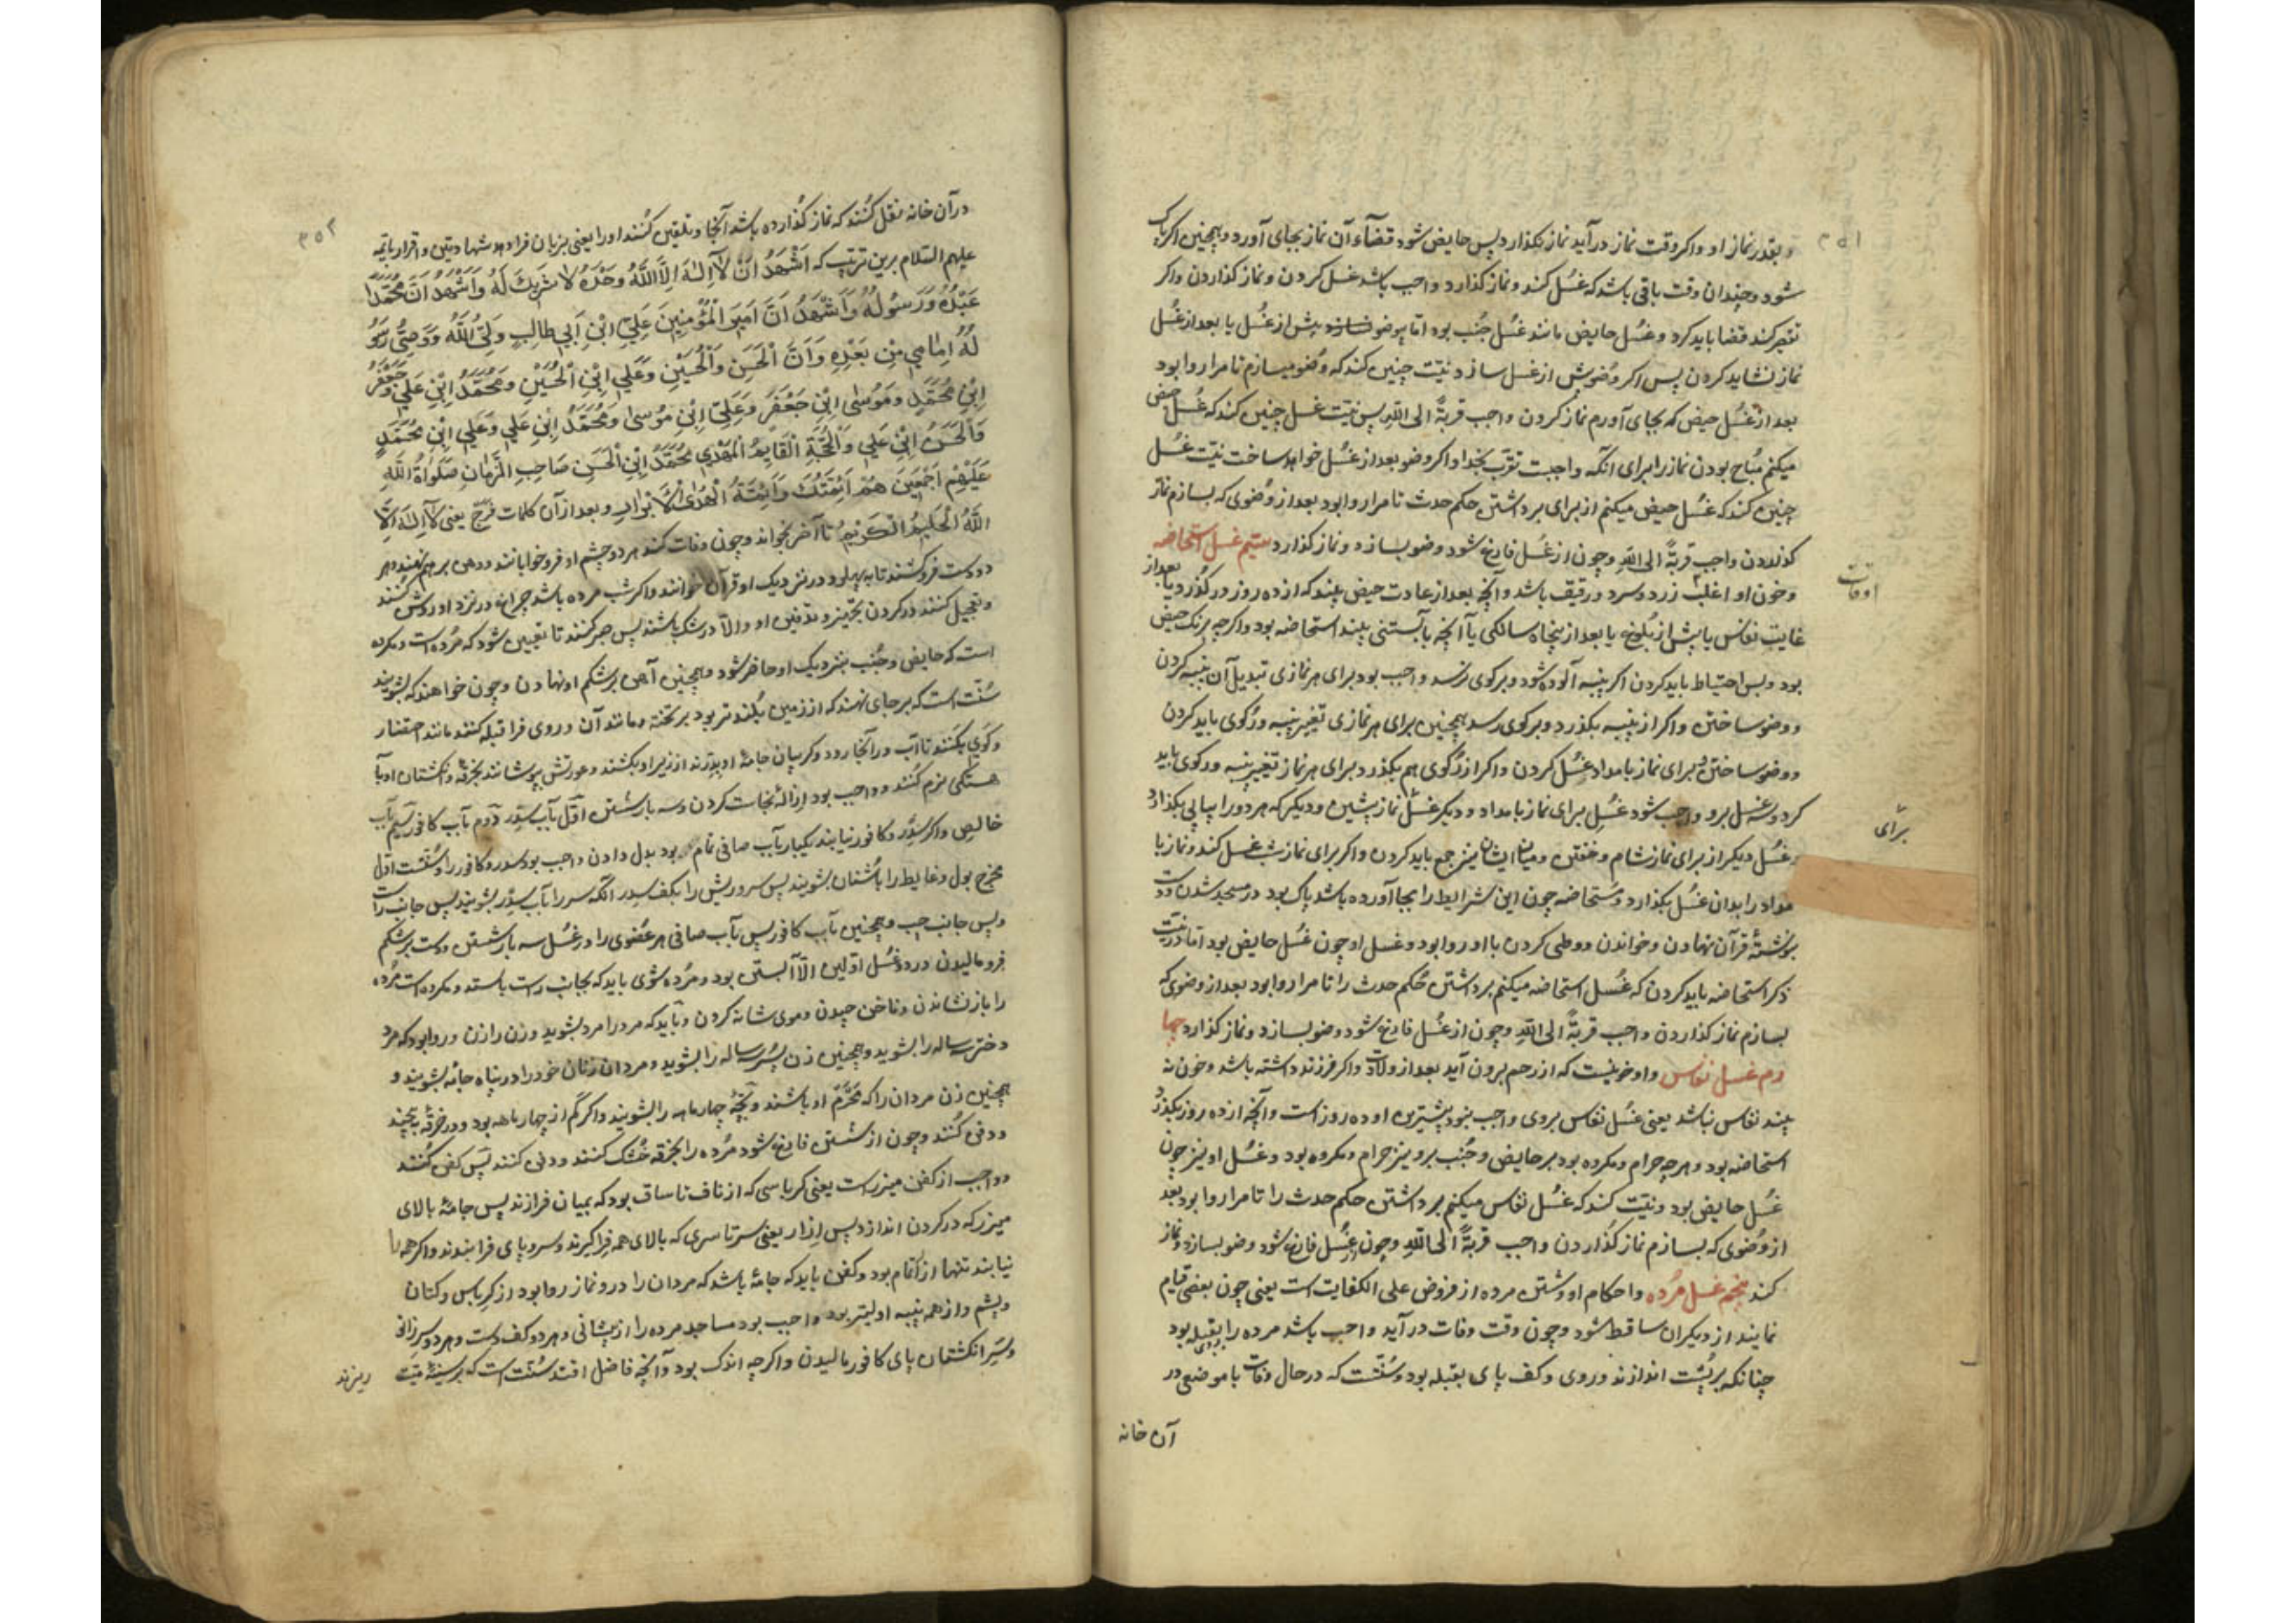 ۳۵۱
و بقدر نماز او و اکر وقت نماز درآید نماز نکذارد پس حایض شود قضآء آن نماز بجای آورد و همچنین اکر پاک
شود و چندان وقت باقی باشد که غسل کند و نماز کذارد واجب باشد غسل کردن و نماز کذاردن و اکر
تقصیر کند قضا باید کرد و غسل حایض مانند غسل جنب بود اما بی وضو نسازد پیش از غسل یا بعد از غسل
نماز نشاید کردن پس اکر وضو پیش از غسل سازد نیّت چنین کند که وضو میسازم تا مرا روا بود
بعد از غسل حیض که بجای آورم نماز کردن واجب قربةً الی الله پس نیّت غسل چنین کند که غسل حیض
میکنم مباح بودن نماز را برای آنکه واجبت تقرّب بخدا و اکر وضو بعد از غسل خواهد ساخت نیّت غسل
چنین کند که غسل حیض میکنم از برای برداشتن حکم حدث تا مرا روا بود بعد از وضوی که بسازم نماز
کذاردن واجب قربةً الی الله و چون از غسل فارغ شود وضو بسازد و نماز کذارد سیّم غسل استحاضه
و خون او اغلب اوقات زرد و سرد و رقیق باشد و آنچه بعد از عادت حیض بیند که از ده روز درکذرد یا بعد از
غایت نفاس یا پیش از بلوغ یا بعد از پنجاه سالکی یا آنچه با آبستنی بیند استحاضه بود و اکرچه برنک حیض
بود و پس احتیاط باید کردن اکر پنبه آلوده شود و برکوی نرسد واجب بود برای هر نمازی تبدیل آن پنبه کردن
و وضو ساختن و اکر از پنبه بکذرد و برکوی رسد همچنین برای هر نمازی تغییر پنبه و رکوی باید کردن
و وضو ساختن و برای نماز بامداد غسل کردن و اکر از رکوی هم بکذرد برای هر نماز تغییر پنبه و رکوی باید
کرد و سه غسل برو واجب شود غسل برای نماز بامداد و دیکر غسل برای نماز پیشین و دیکر که هر دو را پیاپی بکذارد
و غسل دیکر از برای نماز شام و خفتن و میان ایشان نیز جمع باید کردن و اکر برای نماز شب غسل کند و نماز با
مداد را بدان غسل بکذارد و مستحاضه چون این شرایط را بجا آورده باشد پاک بود در مسجد شدن و دست
بنوشتهٔ قرآن نهادن و خواندن و وطی کردن با او روا بود و غسل او چون غسل حایض بود اما در نیّت
ذکر استحاضه باید کردن که غسل استحاضه میکنم برداشتن حکم حدث را تا مرا روا بود بعد از وضوی که
بسازم نماز کذاردن واجب قربةً الی الله و چون از غسل فارغ شود وضو بسازد و نماز کذارد چها
رم غسل نفاس و او خونیست که از رحم برون آید بعد از ولادت و اکر فرزند داشته باشد و خون نه
بیند نفاس نباشد یعنی غسل نفاس بر وی واجب نبود و بیشترین او ده روز است و آنچه از ده روز بکذرد
استحاضه بود و هر چه حرام و مکروه بود بر حایض و جنب برو نیز حرام و مکروه بود و غسل او نیز چون
غسل حایض بود و نیّت کند که غسل نفاس میکنم برداشتن حکم حدث را تا مرا روا بود بعد
از وضوی که بسازم نماز کذاردن واجب قربةً الی الله و چون از غسل فارغ شود وضو بسازد و نماز
کند پنجم غسل مرده و احکام او و شستن مرده از فروض علی الکفایت است یعنی چون بعضی قیام
نمایند از دیکران ساقط شود و چون وقت وفات درآید واجب باشد مرده را بقبله بود
چنانکه بر پشت اندازند و روی و کف پای بقبله بود و سنّتست که در حال وفات با موضعی در
آن خانه
۳۵۲
در آن خانه نقل کنند که نماز کذارده باشد آنجا و تلقین کنند او را یعنی بزبان فرا دهند شهادتین و اقرار بائمه
علیهم السلام برین ترتیب که اَشْهَدُ اَنْ لآاِلٰهَ اِلاَّ اللهُ وَحْدَهُ لا شَرِیكَ لَهُ وَ اَشْهَدُ اَنَّ مُحَمَّدًا
عَبْدُهُ وَ رَسُولُهُ وَ اَشْهَدُ اَنَّ اَمیرَ الْمُؤْمِنینَ عَلِیَّ ابْنِ اَبی طالِبٍ وَلِیُّ اللهُ وَ وَصِیُّ رَسُو
لُهُ اِمامی مِنْ بَعْدِهِ وَ اَنَّ الْحَسَنِ وَ الْحُسَیْنِ وَ عَلِی اِبْنِ الْحُسَیْنِ وَ مُحَمَّدُ اِبْنِ عَلی وَ جَعْفَرُ
ابْنِ مُحَمَّدٍ وَ مُوسٰی ابْنِ جَعْفَرٍ وَ عَلِیّ ابْنِ مُوسٰی وَ مُحَمَّدُ اِبْنِ عَلی وَ عَلی ابْنِ مُحَمَّدٍ
وَ الْحَسَنُ ابْنِ عَلی وَ الْحُجَّةِ الْقایِمُ الْمَهْدِی مُحَمَّدُ اِبْنِ الْحَسَنِ صَاحِبِ الزَّمانِ صَلَواةُ اللهِ
عَلَیْهِمْ اَجْمَعینَ هُمْ اَئِمَّتُكَ وَ اَئِمَّةُ الْهُدَی الْاَبْرارِ و بعد از آن کلمات فرج یعنی لآاِلٰهَ اِلاَّ
اللهُ الْحَلیمُ الْکَریمُ تا آخر بخواند و چون وفات کند هر دو چشم او فرو خوابانند و دهن بر هم نهند و هر
دو دست فرو کشند تا به پهلو و در نزدیک او قرآن خوانند و اکر شب مرده باشد چراغ در نزد او روشن کنند
و تعجیل کنند در کردن تجهیز و تدفین او و الّا در شک باشند پس صبر کنند تا تعیین شود که مرده است و مکروه
است که حایض و جنب بنزدیک او حاضر شود و همچنین آهن بر شکم او نهادن و چون خواهند که بشویند
سنّت است که بر جای نهند که از زمین بلندتر بود بر تخته و مانند آن و روی فرا قبله کنند مانند احتضار
و کوی بکنند تا آب در آنجا رود و کریبان جامهٔ او بدرند از زیر او بکشند و عورتش بپوشانند بخرقه و انکشتان او با
هستکی نرم کنند و واجب بود ازالهٔ نجاست کردن و سه بار شستن اوّل بآب سدر دوم بآب کافور سیّم بآب
خالص و اکر سدر و کافور نیابند یکبار بآب صافی تمام بود بدل دادن واجب بود سدر و کافور را و سنّتست اوّل
مخرج بول و غایط را باشنان بشویند پس سر و ریش را بکف سدر آنکه سر را بآب سدر بشویند پس جانب راست
و پس جانب چپ و همچنین بآب کافور پس بآب صافی هر عضوی را در غسل سه بار شستن و دست بر شکم
فرو مالیدن در دو غسل اوّلین الّا آبستن بود و مرده شوی باید که بجانب راست باستد و مکروه است مرده
را باز نشاندن و ناخن چیدن و موی شانه کردن و باید که مرد را مرد بشوید و زن را زن و روا بود که مرد
دختر سه ساله را بشوید و همچنین زن پسر سه ساله را بشوید و مردان زنان خود را در پناه جامه بشویند و
همچنین زن مردان را که محرم او باشند و بچّهٔ چهار ماهه را بشویند و اکر کم از چهار ماهه بود و در خرقه پیچند
و دفن کنند و چون از شستن فارغ شود مرده را بخرقه خشک کنند و دفن کنند پس کفن کنند
و واجب از کفن میزر است یعنی کرباسی که از ناف تا ساق بود که بمیان فرازند پس جامهٔ بالای
میزر که در کردن اندازد پس ازار یعنی سرتاسری که بالای همه فراکیرند و سر و پای فرا بندند و اکر همه را
نیابند تنها ازار تمام بود و کفن باید که جامهٔ باشد که مردان را در و نماز روا بود از کرباس و کتان
و پشم و از همه پنبه اولیتر بود و واجب بود مساجد مرده را از پیشانی و هر دو کف دست و هر دو سر زانی
و سر انکشتان پای کافور مالیدن و اکرچه اندک بود و آنچه فاضل افتد سنّت است که بر سینهٔ میّت
ریزند